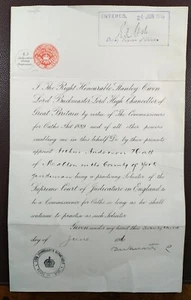 ENTERED
I The Right Honourable Stanley Owen
Lord Buckmaster Lord High Chancellor of
Great Britain by virtue of The Commissioners
for Oaths Act 1889 and of all other powers
enabling me in this behalf Do by these presents
appoint Anderson Hall
of Malton in the County of York
Gentleman being a practising Solicitor of the
Supreme Court of Judicature in England to
be a Commissioner for Oaths so long as he shall
continue to practise as such Solicitor
Given under my hand this
day of June
Buckmaster C